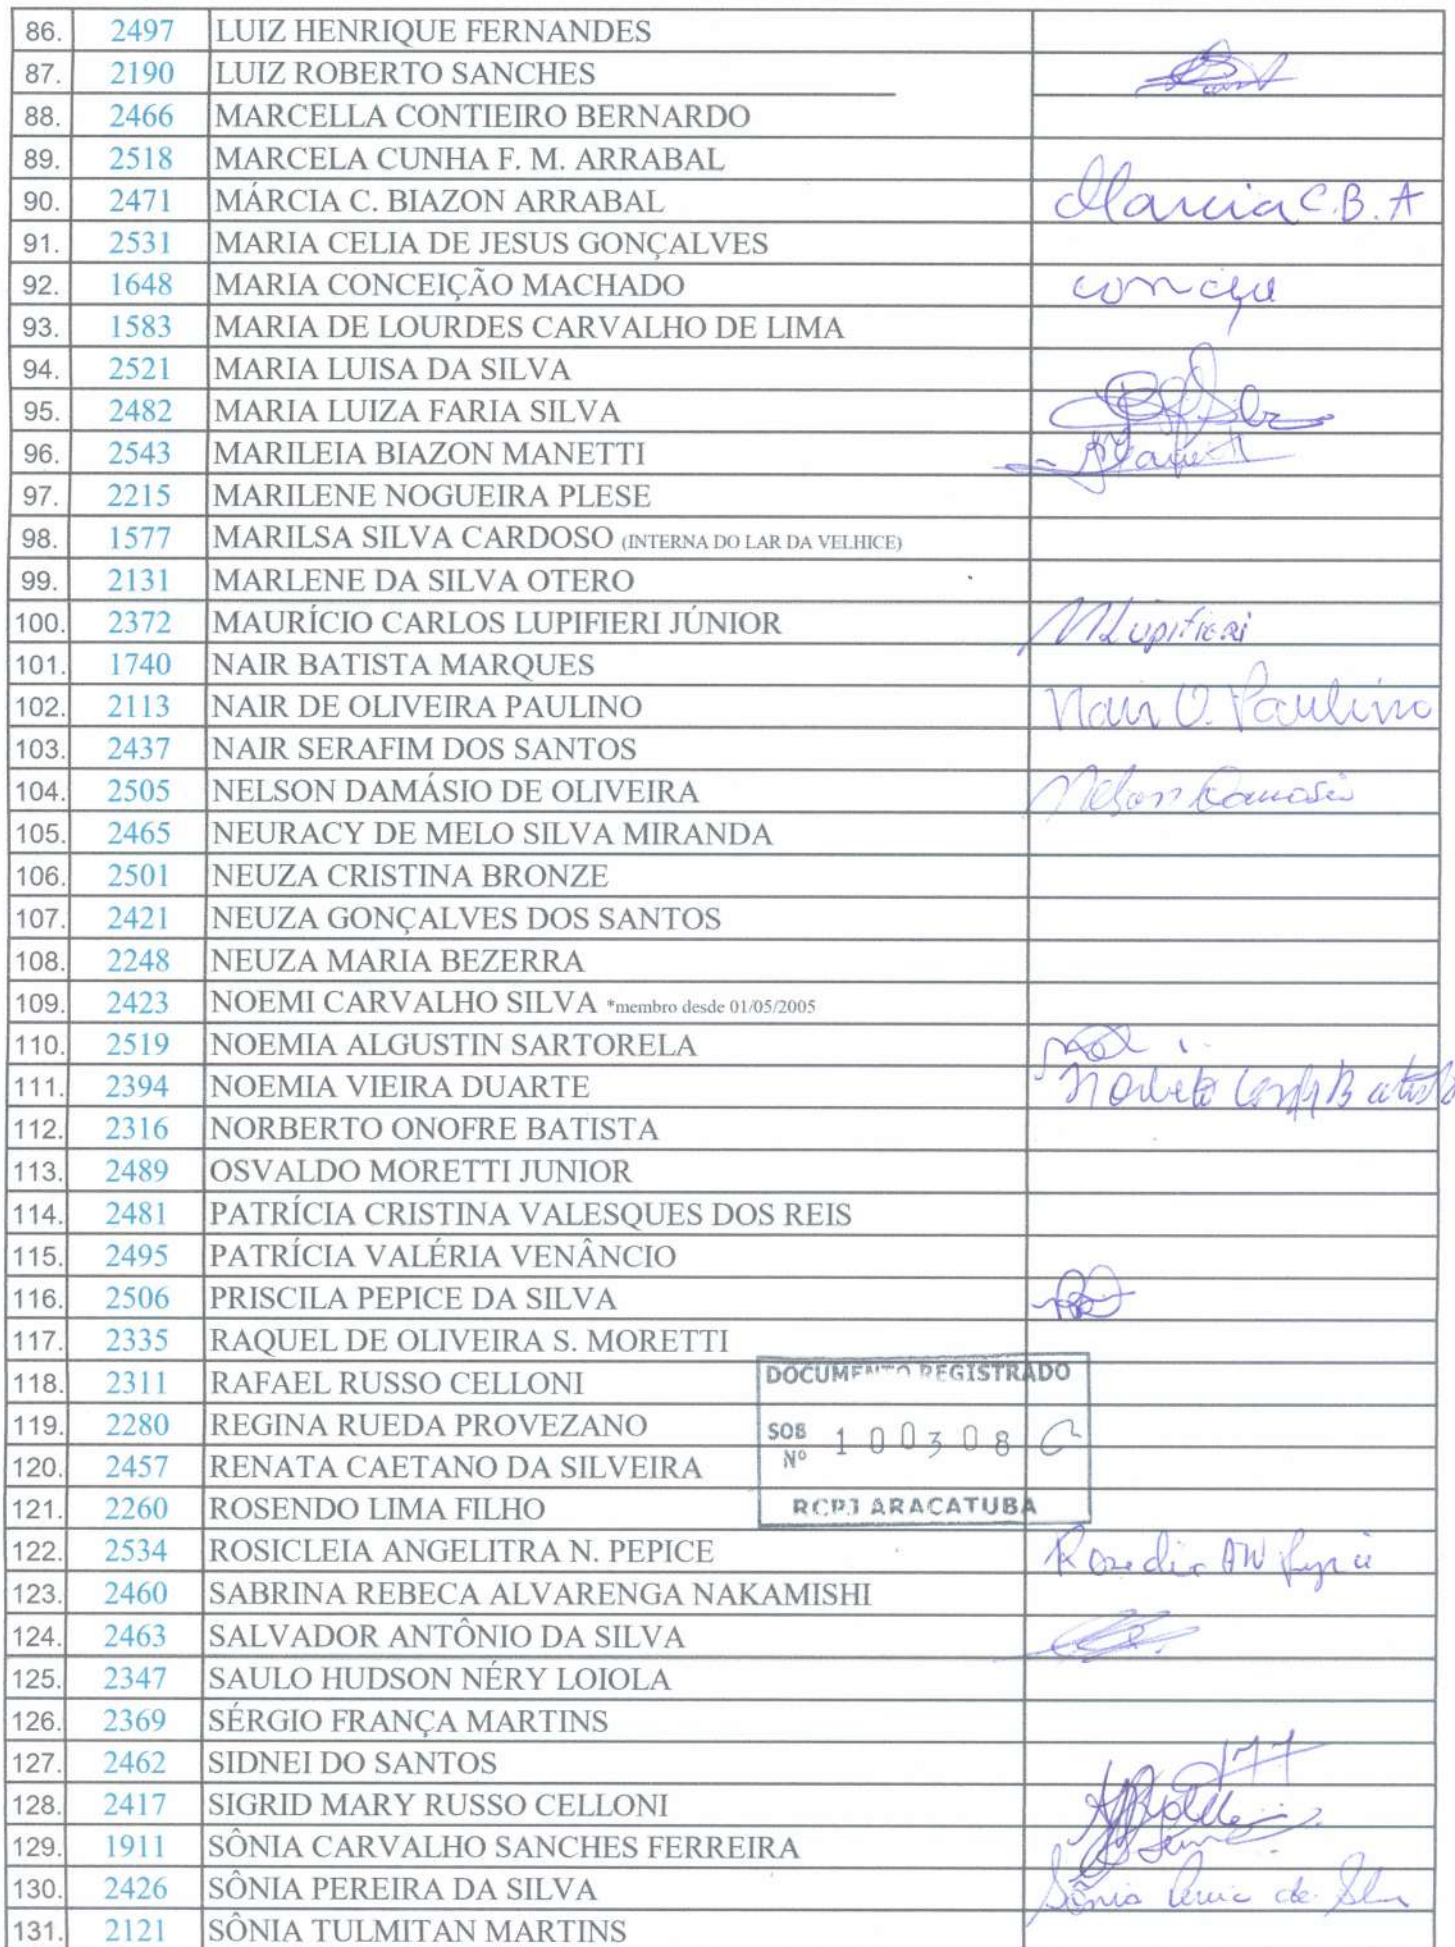 86. 2497 LUIZ HENRIQUE FERNANDES
87. 2190 LUIZ ROBERTO SANCHES
88. 2466 MARCELLA CONTIEIRO BERNARDO
89. 2518 MARCELA CUNHA F. M. ARRABAL
90. 2471 MÁRCIA C. BIAZON ARRABAL Marcia C.B.A
91. 2531 MARIA CELIA DE JESUS GONÇALVES
92. 1648 MARIA CONCEIÇÃO MACHADO
93. 1583 MARIA DE LOURDES CARVALHO DE LIMA
94. 2521 MARIA LUISA DA SILVA
95. 2482 MARIA LUIZA FARIA SILVA
96. 2543 MARILEIA BIAZON MANETTI
97. 2215 MARILENE NOGUEIRA PLESE
98. 1577 MARILSA SILVA CARDOSO (INTERNA DO LAR DA VELHICE)
99. 2131 MARLENE DA SILVA OTERO
100. 2372 MAURÍCIO CARLOS LUPIFIERI JÚNIOR MLupifieri
101. 1740 NAIR BATISTA MARQUES
102. 2113 NAIR DE OLIVEIRA PAULINO Nair O. Paulino
103. 2437 NAIR SERAFIM DOS SANTOS
104. 2505 NELSON DAMÁSIO DE OLIVEIRA Nelson Damasio
105. 2465 NEURACY DE MELO SILVA MIRANDA
106. 2501 NEUZA CRISTINA BRONZE
107. 2421 NEUZA GONÇALVES DOS SANTOS
108. 2248 NEUZA MARIA BEZERRA
109. 2423 NOEMI CARVALHO SILVA *membro desde 01/05/2005
110. 2519 NOEMIA ALGUSTIN SARTORELA
111. 2394 NOEMIA VIEIRA DUARTE Norberto Batista
112. 2316 NORBERTO ONOFRE BATISTA
113. 2489 OSVALDO MORETTI JUNIOR
114. 2481 PATRÍCIA CRISTINA VALESQUES DOS REIS
115. 2495 PATRÍCIA VALÉRIA VENÂNCIO
116. 2506 PRISCILA PEPICE DA SILVA
117. 2335 RAQUEL DE OLIVEIRA S. MORETTI
DOCUMENTO REGISTRADO
118. 2311 RAFAEL RUSSO CELLONI
119. 2280 REGINA RUEDA PROVEZANO
SOB Nº 100308
120. 2457 RENATA CAETANO DA SILVEIRA
121. 2260 ROSENDO LIMA FILHO
RCPJ ARACATUBA
122. 2534 ROSICLEIA ANGELITRA N. PEPICE
123. 2460 SABRINA REBECA ALVARENGA NAKAMISHI
124. 2463 SALVADOR ANTÔNIO DA SILVA
125. 2347 SAULO HUDSON NÉRY LOIOLA
126. 2369 SÉRGIO FRANÇA MARTINS
127. 2462 SIDNEI DO SANTOS
128. 2417 SIGRID MARY RUSSO CELLONI
129. 1911 SÔNIA CARVALHO SANCHES FERREIRA
130. 2426 SÔNIA PEREIRA DA SILVA Sônia de
131. 2121 SÔNIA TULMITAN MARTINS